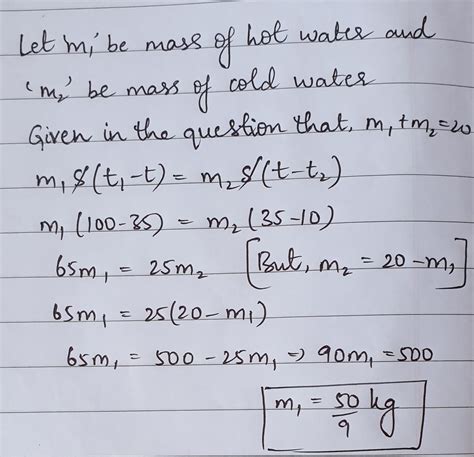 Let 'm₁' be mass of hot water and
'm₂' be mass of cold water
Given in the question that, m₁+m₂=20
m₁s(t₁-t) = m₂s(t-t₂)
m₁(100-35) = m₂(35-10)
65m₁ = 25m₂ [But, m₂ = 20-m₁]
65m₁ = 25(20-m₁)
65m₁ = 500 - 25m₁ ⇒ 90m₁ = 500
m₁ = 50/9 kg